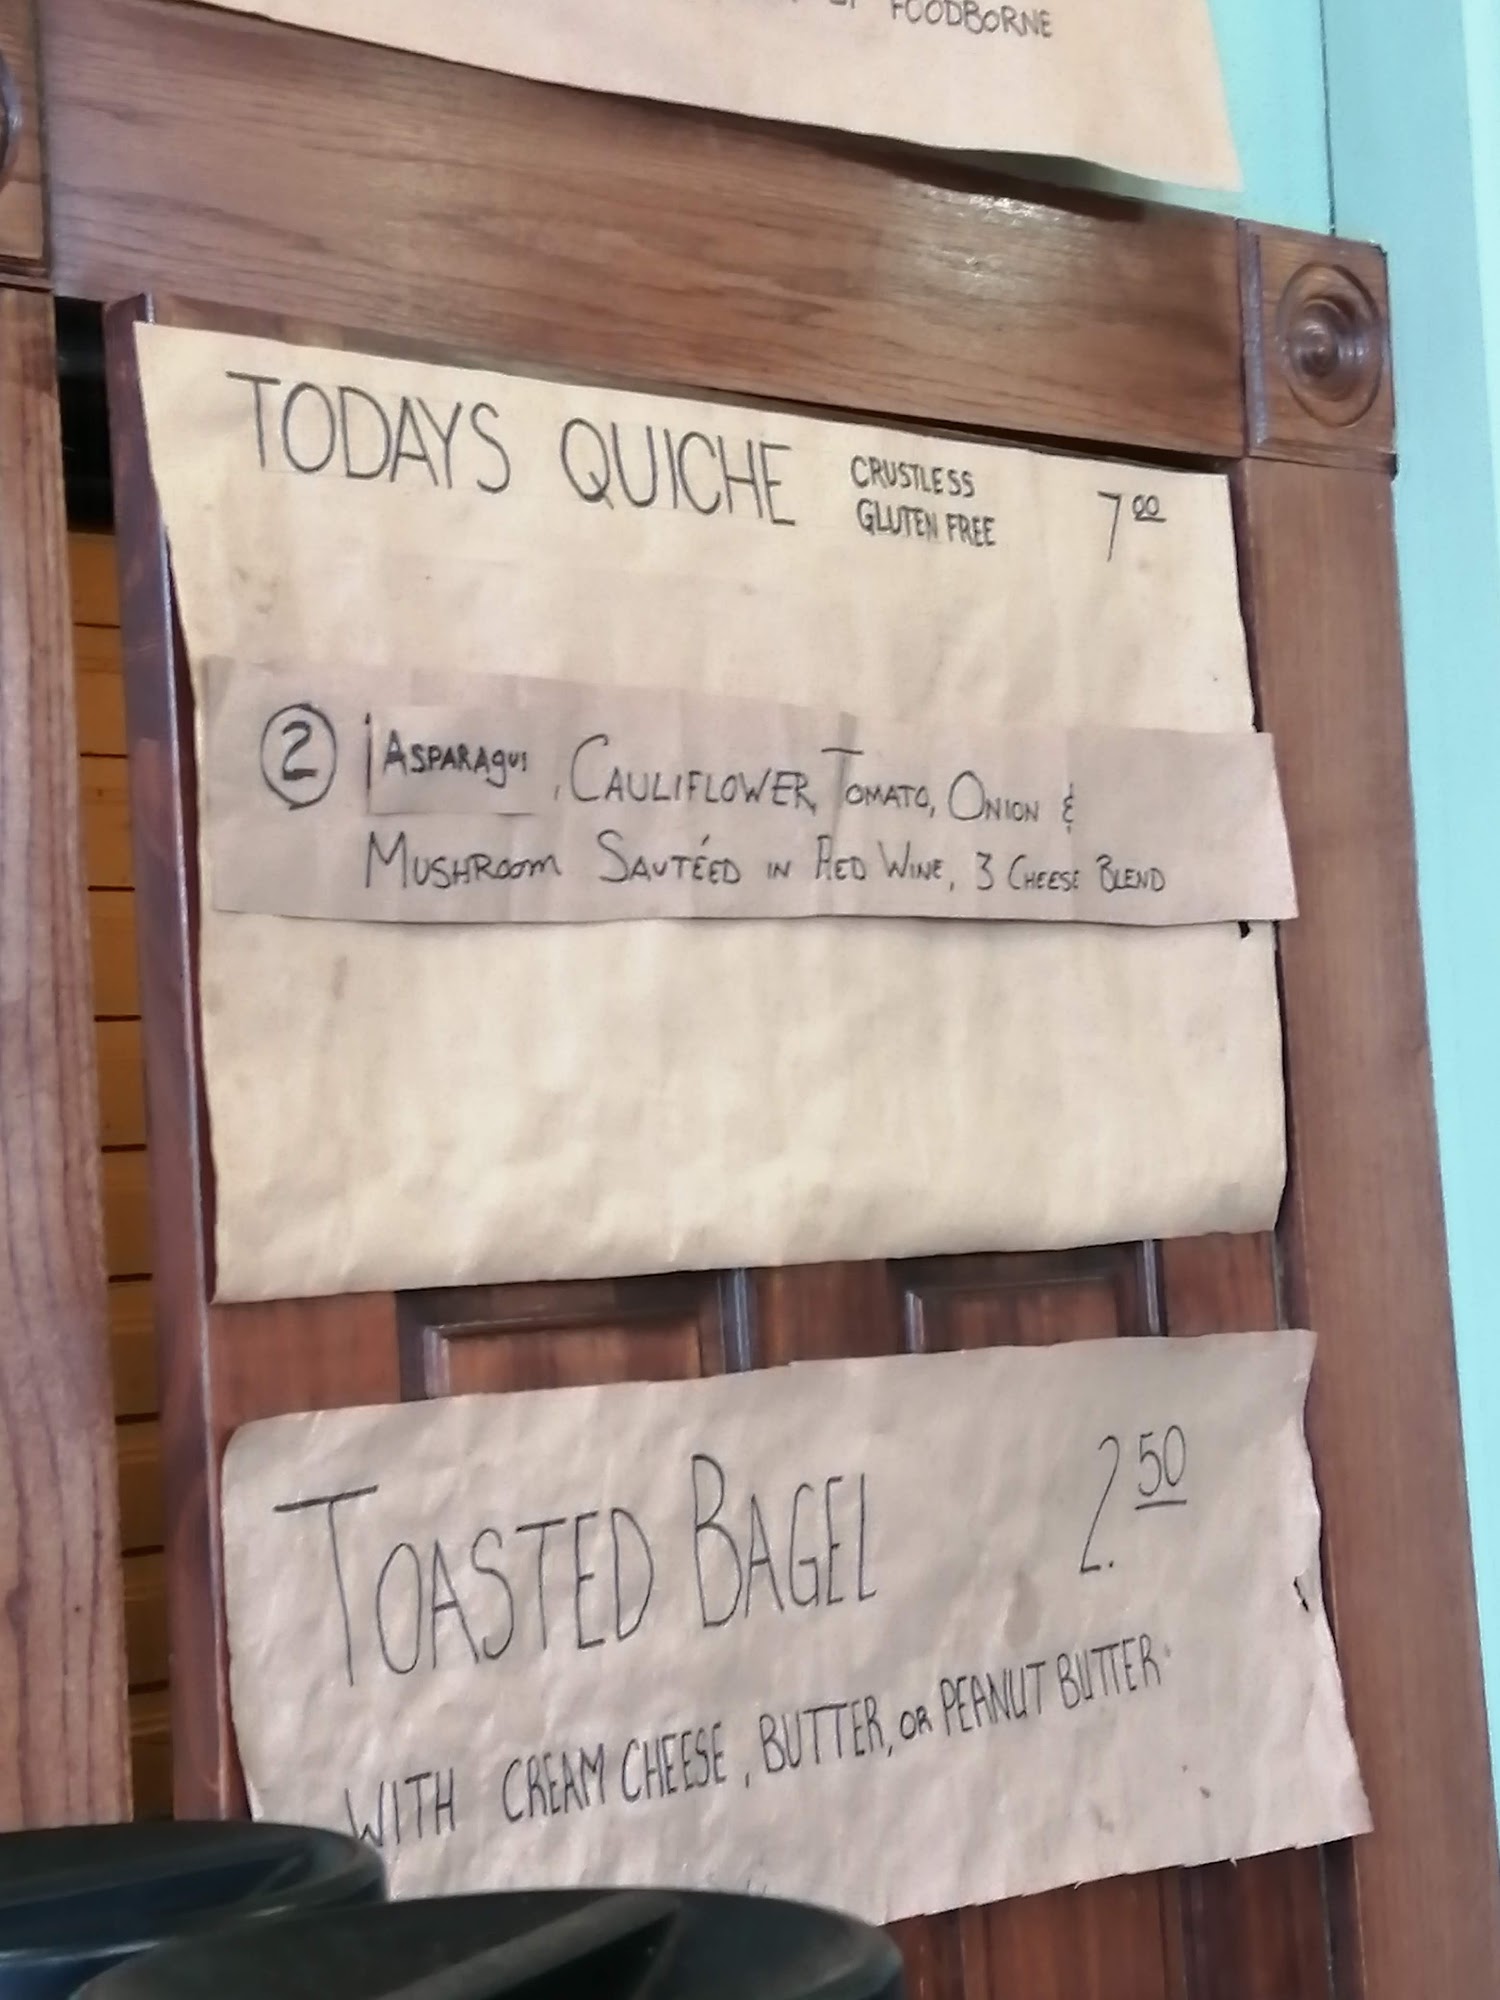 FOODBORNE
TODAYS QUICHE CRUSTLESS GLUTEN FREE 7 00
2 ASPARAGUS, CAULIFLOWER, TOMATO, ONION &
MUSHROOM SAUTÉED IN RED WINE, 3 CHEESE BLEND
TOASTED BAGEL 2.50
WITH CREAM CHEESE, BUTTER, OR PEANUT BUTTER